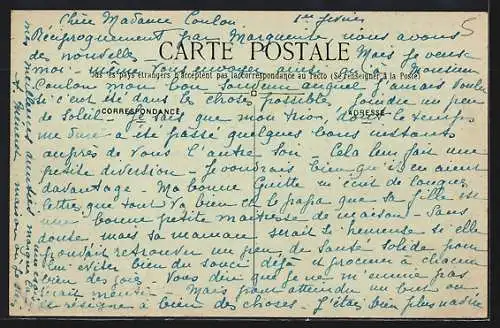 Chère Madame Coulon 1er février 5
Réciproquement par Marguerite nous avons
de nouvelles Mais je veux
CARTE POSTALE
moi vous envoyer aussi Monsieur
Tous les pays étrangers n'acceptent pas la correspondance au recto (Se renseigner à la Poste)
Coulon mon bon souvenir auquel j'aurais voulu
si c'eut été dans le choses possible, joindre un peu
de soleil - Je sais que mon trio, le temps
CORRESPONDANCE
ADRESSE
me a été passé quelques bons instants
auprès de vous l'autre soir - Cela leur fait une
petite diversion - Je voudrais bien qu'ils en aient
davantage - Ma bonne Guitte m'écrit de longues
lettres, que tout va bien et le papa que sa fille est
une bonne petite maîtresse de maison - Sans
doute mais sa maman serait si heureuse si elle
pouvait retrouver un peu de santé solide pour
lui éviter bien du souci déjà et procurer à chacun
bien des joies Vous dire que je ne m'ennuie pas
serait mentir - Mais pour attendre un bien on
se résigne à bien des choses - J'étais bien plus navrée
mes meilleures amitiés